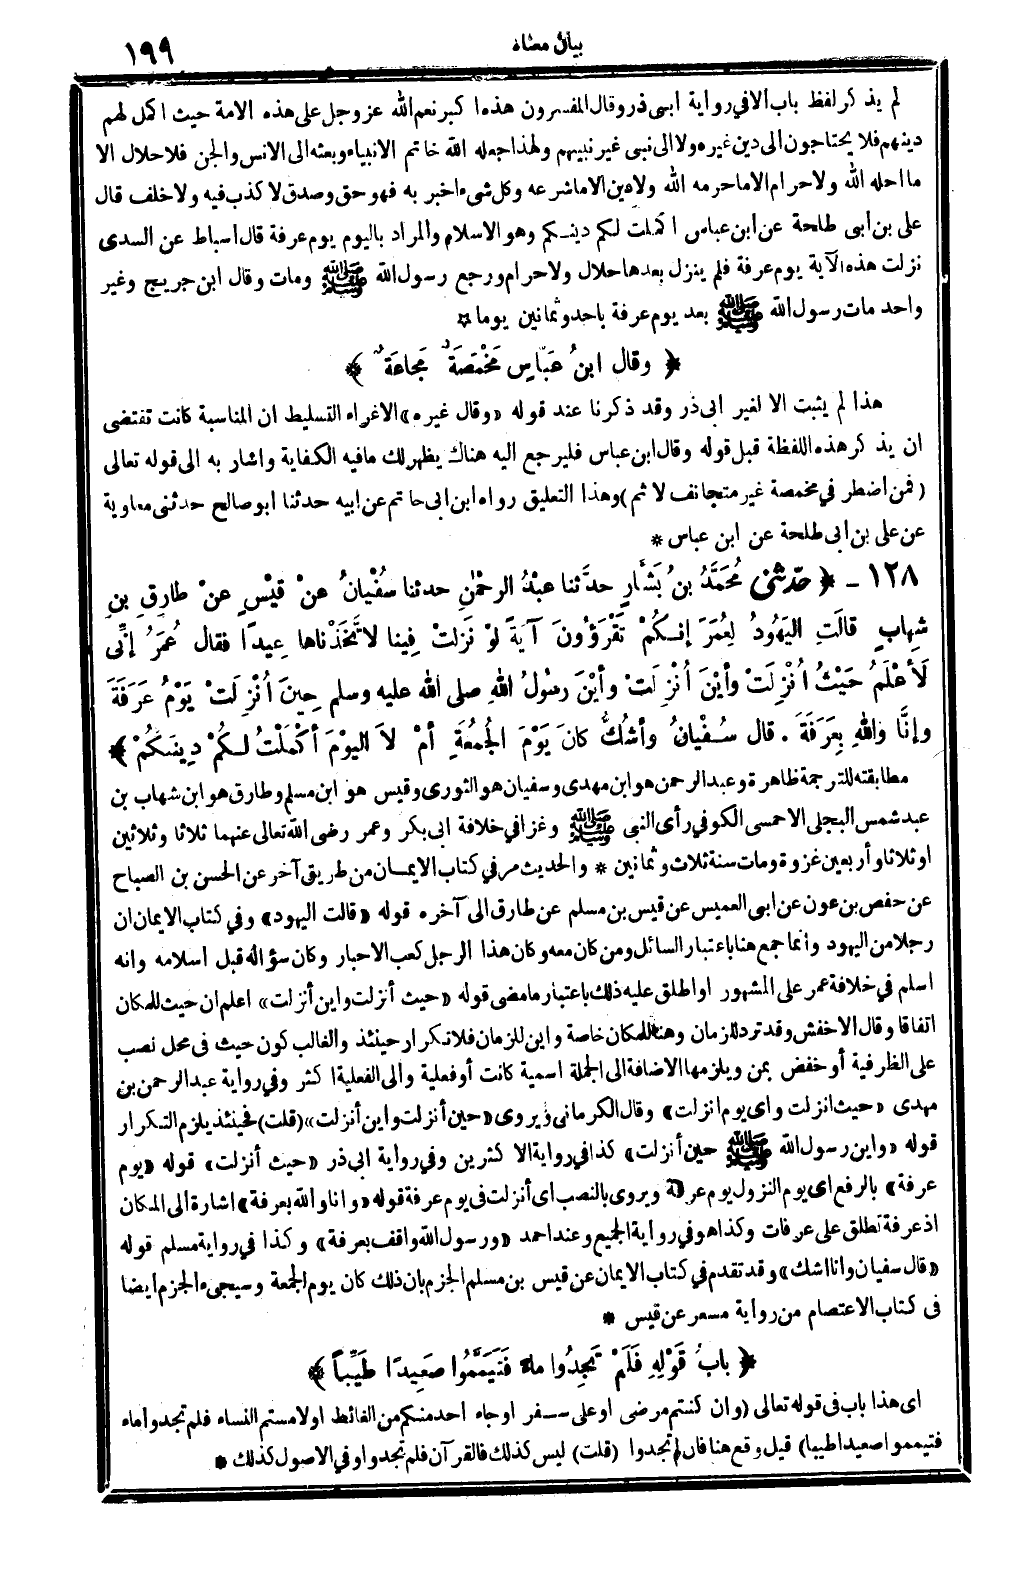 بيان معناه
١٩٩
لم يذكر لفظ باب الا في رواية ابى ذر وقال المفسرون هذه ا كبر نعم الله عز وجل على هذه الامة حيث اكمل لهم
دينهم فلا يحتاجون الى دين غيره ولا الى نبى غير نبيهم ولهذا جعله الله خاتم الانبياء وبعثه الى الانس والجن فلا حلال الا
ما احله الله ولا حرام الا ما حرمه الله ولا دين الا ما شرعه وكل شىء اخبر به فهو حق وصدق لا كذب فيه ولا خلف قال
على بن أبى طلحة عن ابن عباس اكملت لكم دينكم وهو الاسلام والمراد باليوم يوم عرفة قال أسباط عن السدى
نزلت هذه الآية يوم عرفة فلم ينزل بعدها حلال ولا حرام ورجع رسول الله ﷺ ومات وقال ابن جريج وغير
واحد مات رسول الله ﷺ بعد يوم عرفة باحد وثمانين يوما *
﴿ وقال ابنُ عَبَّاسٍ مَخْمَصَةٌ مَجاعَةٌ ﴾
هذا لم يثبت الا لغير ابى ذر وقد ذكرنا عند قوله «وقال غيره» الاغراء التسليط ان المناسبة كانت تقتضى
ان يذكر هذه اللفظة قبل قوله وقال ابن عباس فليرجع اليه هناك يظهر لك ما فيه الكفاية واشار به الى قوله تعالى
(فمن اضطر في مخمصة غير متجانف لاثم) وهذا التعليق رواه ابن ابى حاتم عن ابيه حدثنا ابو صالح حدثنى معاوية
عن على بن ابى طلحة عن ابن عباس *
١٢٨ - ﴿ حدثنى مُحَمَّدُ بنُ بَشَّارٍ حدَّثنا عبْدُ الرحْمٰنِ حدثنا سُفْيانُ عنْ قيْسٍ عنْ طارِقِ بنِ
شِهابٍ قالَتِ اليَهُودُ لِعُمَرَ إنكُمْ تَقْرَؤُونَ آيَةً لوْ نَزلتْ فِينا لاتَّخَذْناها عِيدًا فقال عُمَرُ إنِّى
لَأعْلَمُ حَيْثُ اُنْزِلَتْ وأيْنَ اُنْزِلَتْ وأيْنَ رسُولُ اللهِ صلى الله عليه وسلم حِينَ اُنْزِلَتْ يَوْمُ عَرَفَةَ
وإنَّا واللهِ بِعَرَفَةَ . قال سُفْيانُ وأشُكُّ كانَ يَوْمَ الجُمعَةِ أمْ لاَ اليَوْمَ أكْمَلْتُ لكُمْ دِينَكُمْ ﴾
مطابقته للترجمة ظاهرة وعبد الرحمن هو ابن مهدى وسفيان هو الثورى وقيس هو ابن مسلم وطارق هو ابن شهاب بن
عبد شمس البجلى الاحمسى الكوفي رأى النبى ﷺ وغزا في خلافة ابى بكر وعمر رضى الله تعالى عنهما ثلاثا وثلاثين
او ثلاثا وأربعين غزوة ومات سنة ثلاث وثمانين * والحديث مر في كتاب الايمان من طريق آخر عن الحسن بن الصباح
عن حفص بن عون عن ابى العميس عن قيس بن مسلم عن طارق الى آخره قوله «قالت اليهود» وفي كتاب الايمان ان
رجلا من اليهود وأنما جمع هنا باعتبار السائل ومن كان معه وكان هذا الرجل كعب الاحبار وكان سؤاله قبل اسلامه وانه
اسلم في خلافة عمر على المشهور او اطلق عليه ذلك باعتبار ما مضى قوله «حيث أنزلت واين أنزلت» اعلم ان حيث للمكان
اتفاقا وقال الاخفش وقد ترد للزمان وهنا للمكان خاصة واين للزمان فلا تكرار حينئذ والغالب كون حيث فى محل نصب
على الظرفية أو خفض بمن ويلزمها الاضافة الى الجملة اسمية كانت أو فعلية والى الفعلية اكثر وفي رواية عبد الرحمن بن
مهدى «حيث انزلت واى يوم انزلت» وقال الكرمانى ويروى «حين أنزلت واين أنزلت» (قلت) فحينئذ يلزم التكرار
قوله «واين رسول الله ﷺ حين أنزلت» كذا في رواية الاكثرين وفي رواية ابى ذر «حيث أنزلت» قوله «يوم
عرفة» بالرفع اى يوم النزول يوم عرفة ويروى بالنصب اى أنزلت فى يوم عرفة قوله «وانا والله بعرفة» اشارة الى المكان
اذ عرفة تطلق على عرفات وكذا هو في رواية الجميع وعند احمد «ورسول الله واقف بعرفة» وكذا في رواية مسلم قوله
«قال سفيان وانا اشك» وقد تقدم في كتاب الايمان عن قيس بن مسلم الجزم بان ذلك كان يوم الجمعة وسيجىء الجزم ايضا
فى كتاب الاعتصام من رواية مسعر عن قيس *
﴿ بابُ قَوْلِهِ فَلَمْ تَجِدُوا ماءً فَتَيَمَّمُوا صَعِيدًا طَيِّباً ﴾
اى هذا باب فى قوله تعالى (وان كنتم مرضى او على سفر او جاء احد منكم من الغائط او لامستم النساء فلم تجدوا ماء
فتيمموا صعيدا طيبا) قيل وقع هنا فان لم تجدوا (قلت) ليس كذلك فالقرآن فلم تجدوا وفي الاصول كذلك *